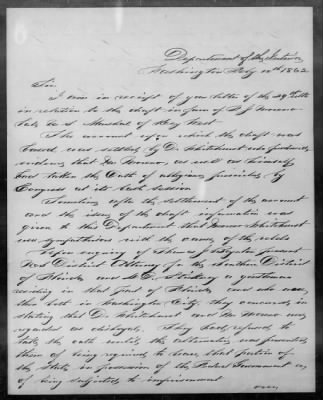 Department of the Interior
Washington July 10th 1862
Sir.
I am in receipt of your letter of the 29 ulto
in relation to the draft in favor of F J Moreno
late U S Marshal of Key West.
The account upon which the draft was
issued was settled by Dr Whitehurst who furnished
evidence that Mr Moreno, as well as himself
had taken the Oath of allegiance prescribed by
Congress at its late session
Sometime after the settlement of the account
and the issue of the draft information was
given to this Department that Moreno & Whitehurst
were sympathizers with the cause of the rebels
Upon enquiry of Thomas J Boynton present
US District Attorney for the Southern District
of Florida and a gentleman
residing in that part of Florida and who were
then both in Washington City, they concurred in
stating that Dr Whitehurst and Mr Moreno was
regarded as disloyal. They had refused to
take the oath until the alternative was presented
them of being required to leave that portion of
the State in possession of the Federal Government or
of being subjected to imprisonment